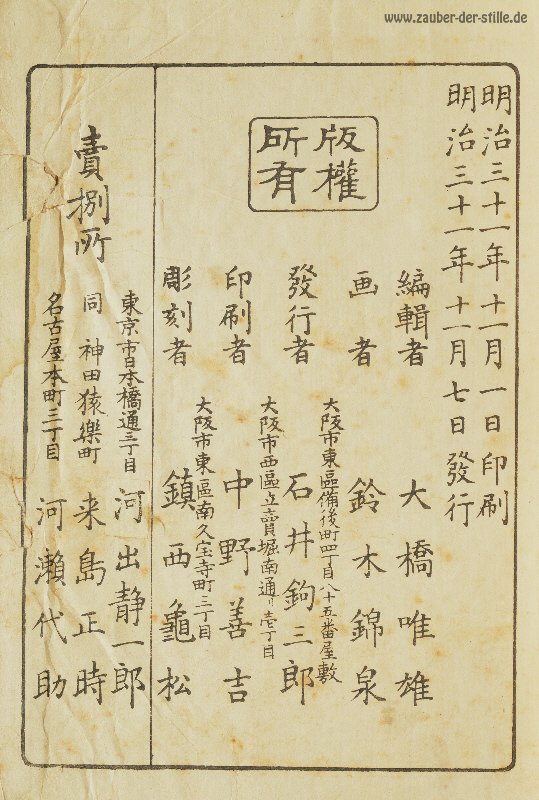 www.zauber-der-stille.de
明治三十一年十一月一日印刷
明治三十一年十一月七日發行
版權
所有
編輯者 大橋唯雄
画者 鈴木錦泉
大阪市東區備後町四丁目八十五番屋敷
發行者 石井鉤三郎
大阪市西區立賣堀南通リ壱丁目
印刷者 中野善吉
大阪市東區南久宝寺町三丁目
彫刻者 鎮西龜松
賣捌所
東京市日本橋通三丁目 河出静一郎
同 神田猿樂町 来島正時
名古屋本町三丁目 河瀬代助